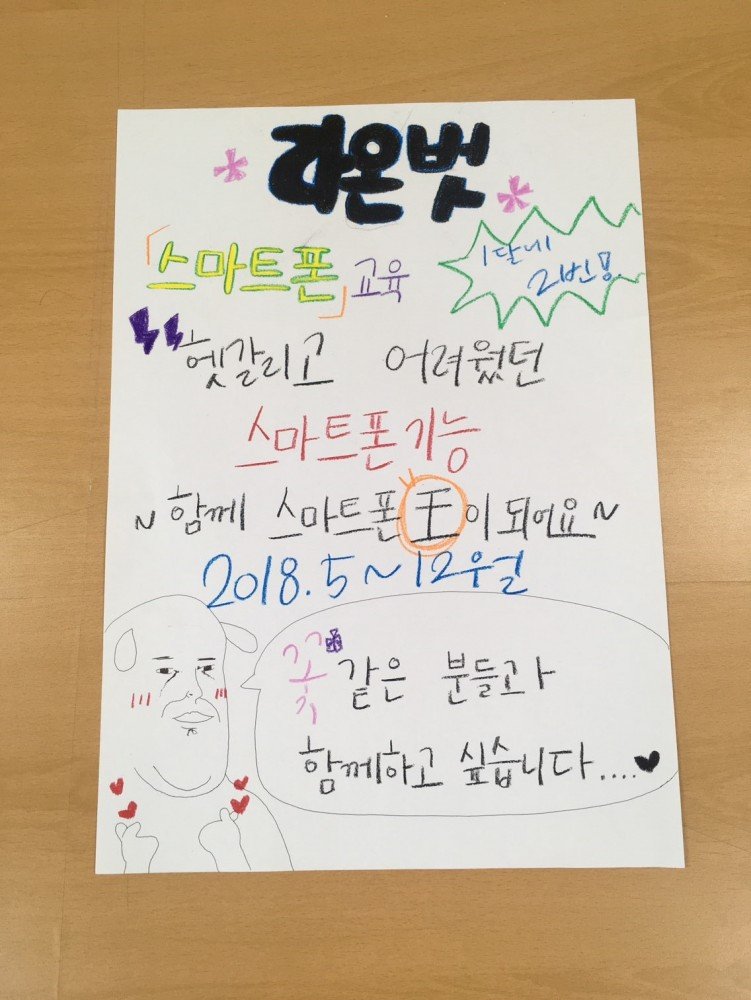 라온벗
「스마트폰」교육
1달에
2번뿅
헷갈리고 어려웠던
스마트폰기능
~함께 스마트폰王이되어요~
2018.5~12월
꽃같은 분들과
함께하고 싶습니다....♥